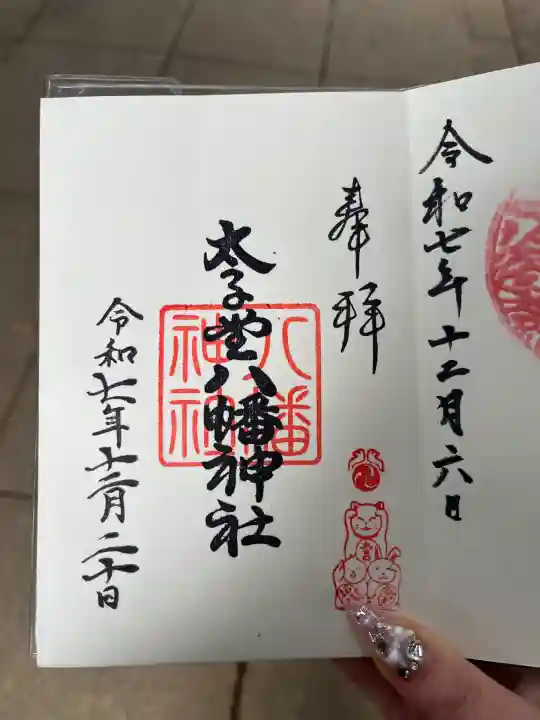 令和七年十二月六日
奉拝
太子堂八幡神社
八幡
神社
令和七年十二月二十日